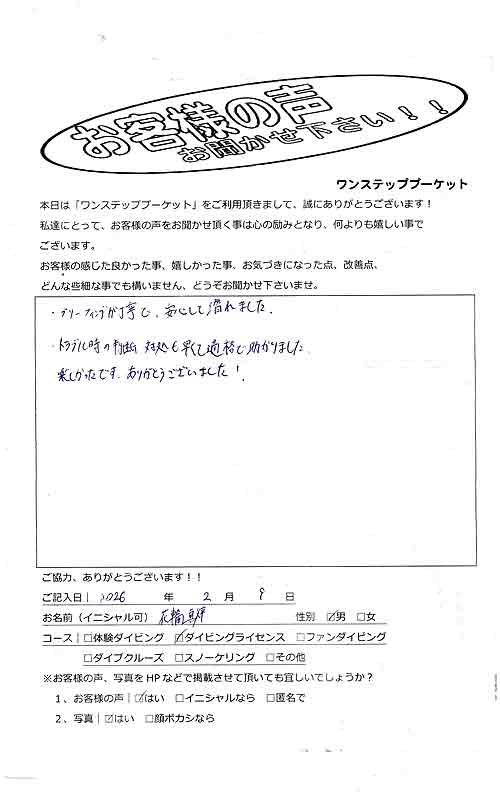 お客様の声
お聞かせ下さい！！
ワンステッププーケット
本日は「ワンステッププーケット」をご利用頂きまして、誠にありがとうございます！
私達にとって、お客様の声をお聞かせ頂く事は心の励みとなり、何よりも嬉しい事で
ございます。
お客様の感じた良かった事、嬉しかった事、お気づきになった点、改善点、
どんな些細な事でも構いません、どうぞお聞かせ下さいませ。
・ブリーフィングが丁寧で、安心して潜れました。
・トラブル時の判断、対処も早くて適格で助かりました。
楽しかったです。ありがとうございました！
ご協力、ありがとうございます！！
ご記入日| 2026 年 2 月 9 日
お名前（イニシャル可） 性別 ☑男 □女
コース| □体験ダイビング ☑ダイビングライセンス □ファンダイビング
□ダイブクルーズ □スノーケリング □その他
※お客様の声、写真をＨＰなどで掲載させて頂いても宜しいでしょうか？
１、お客様の声| ☑はい □イニシャルなら □匿名で
２、写真| ☑はい □顔ボカシなら